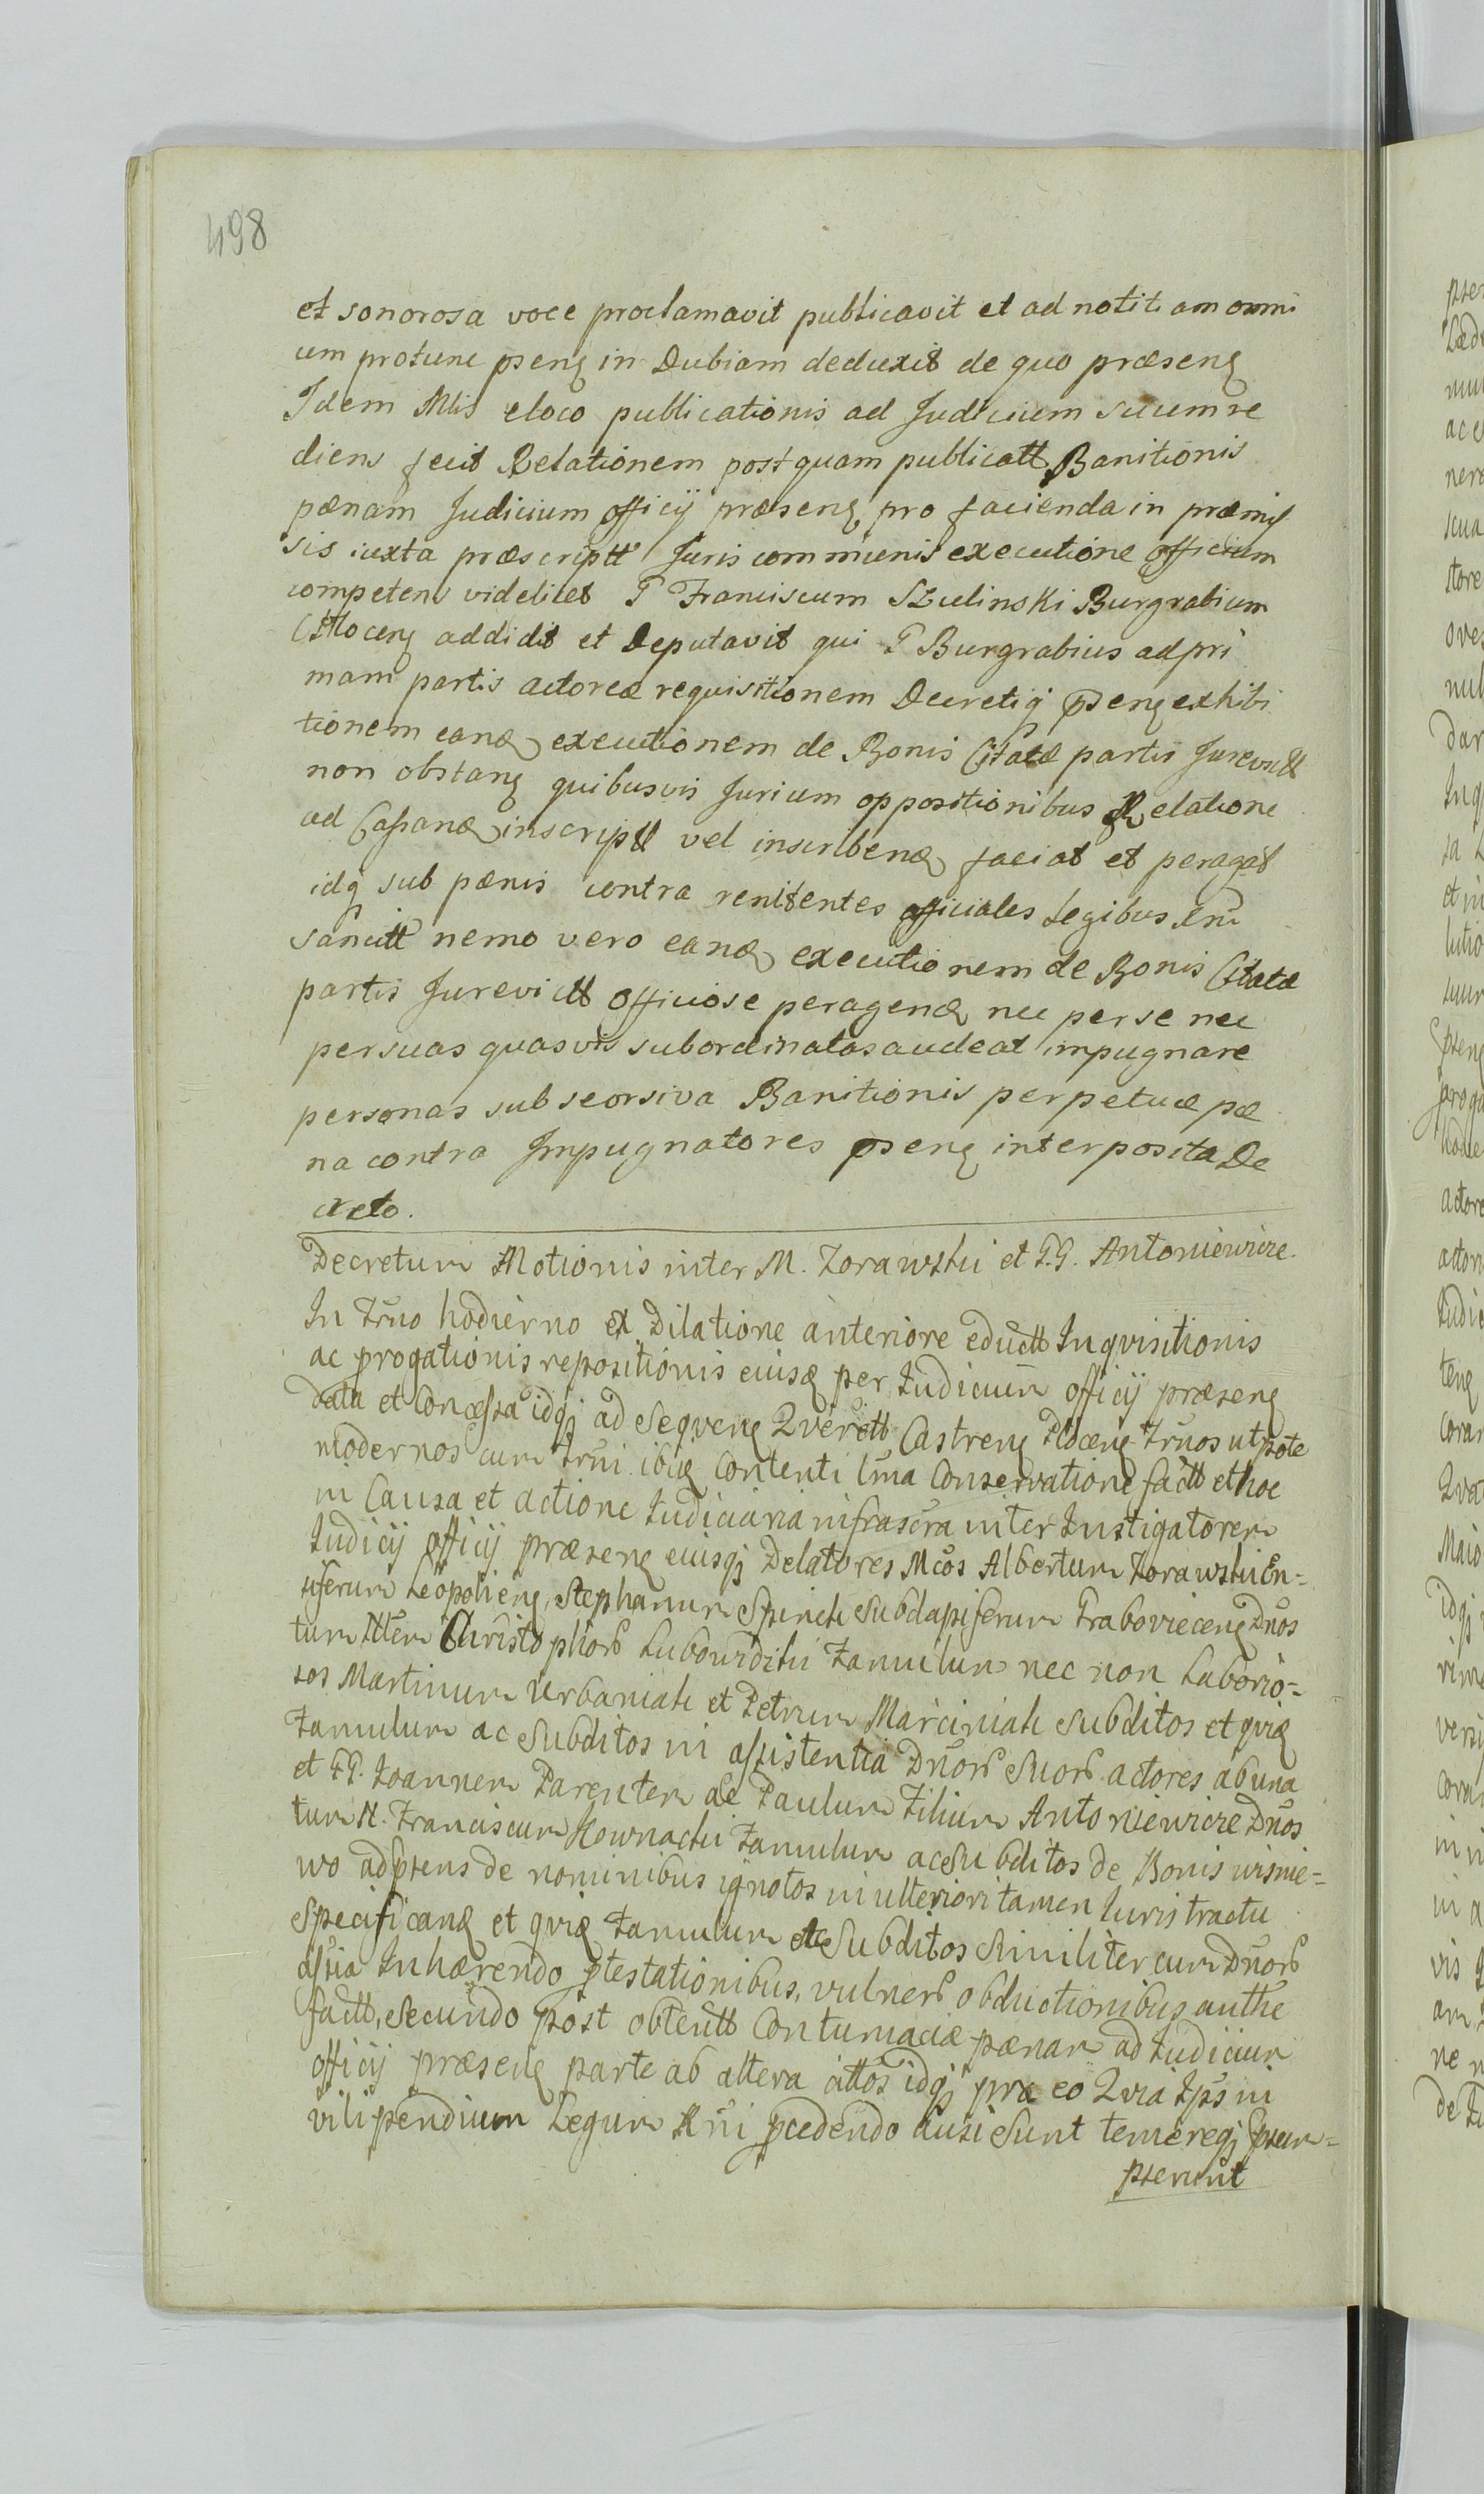 498
et sonorosa voce proclamavit publicavit et ad notitiam omni
um protunc pseng in Dubiam deduxit de quo præseng
Idem Mlis eloco publicationis ad Judicium suum re
diens fecit Relationem post quam publicatt Banitionis
pænam Judicium officij præseng pro facienda in præmis
sis iuxta præscriptt Juris communis executione officium
competens videlicet G Franciscum Szulinski Burgrabium
addidit et Deputavit qui G Burgrabius ad pri
mam partis actoreæ requisitionem Decretiq pseng exhibi
tionem eand executionem de Bonis Citatæ partis Jurevictt
non obstang quibusvis Jurium oppositionibus Relatione
ad Cassand inscriptt vel inscribend faciat et peragat
idq sub pænis contra renitentes officiales Legibus Rni
sancitt nemo vero eand executionem de Bonis Citatæ
partis Jurevictt officiose peragend nec per se nec
per suas quasvis subordinatas audeat impugnare
personas sub seorsiva Banitionis perpetuæ pæ
na contra Impugnatores pseng interposita De
creto.
Decretum Motionis inter M. Zorawski et G.G. Antoniewicze.
In Trno hodierno ex Dilatione anteriore eductt Inqvisitionis
ac progationis repositionis eiusd per Judicium officij præseng
data et Concessa idqj ad Seqveng Qverett Castreng Ploceng Trnos utpote
modernos cum Trni ibid Contenti lma Conservatione factt et hoc
in Causa et actione Judiciaria infrascra inter Instigatorem
Judicij officij præseng eiusqj Delatores Mcos Albertum Zorawski En=
siferum Leopolieng, Stephanum Spinek Subdapiferum Graboviecens Dnos
tum Item Christophor Lubowidzki Famulum nec non Laborio=
sos Martinum Urbaniak et Petrum Marciniak subditos et qvid
Famulum ac Subditos in assistentia Dnor Suor actores ab una
et GG. Joannem Parentem ac Paulum Filium Antoniewicze Dnos
tum N. Franciscum Kownacki Famulum ac Subditos de Bonis wisnie=
wo adpsens de nominibus ignotos in ulteriori tamen Iuris tractu
Specificand et qvid Famulum ac Subditos Similiter cum Dnor
assia Inhærendo ptestationibus, vulner obductionibus authe
factt, Secundo post obtentt Contumaciæ pænam ad Judicium
officij præseng parte ab altera cittos idqj præ eo Qvia Ipsi in
vilipendium Legum Rni pcedendo ausi Sunt temereqj psum=
pserunt